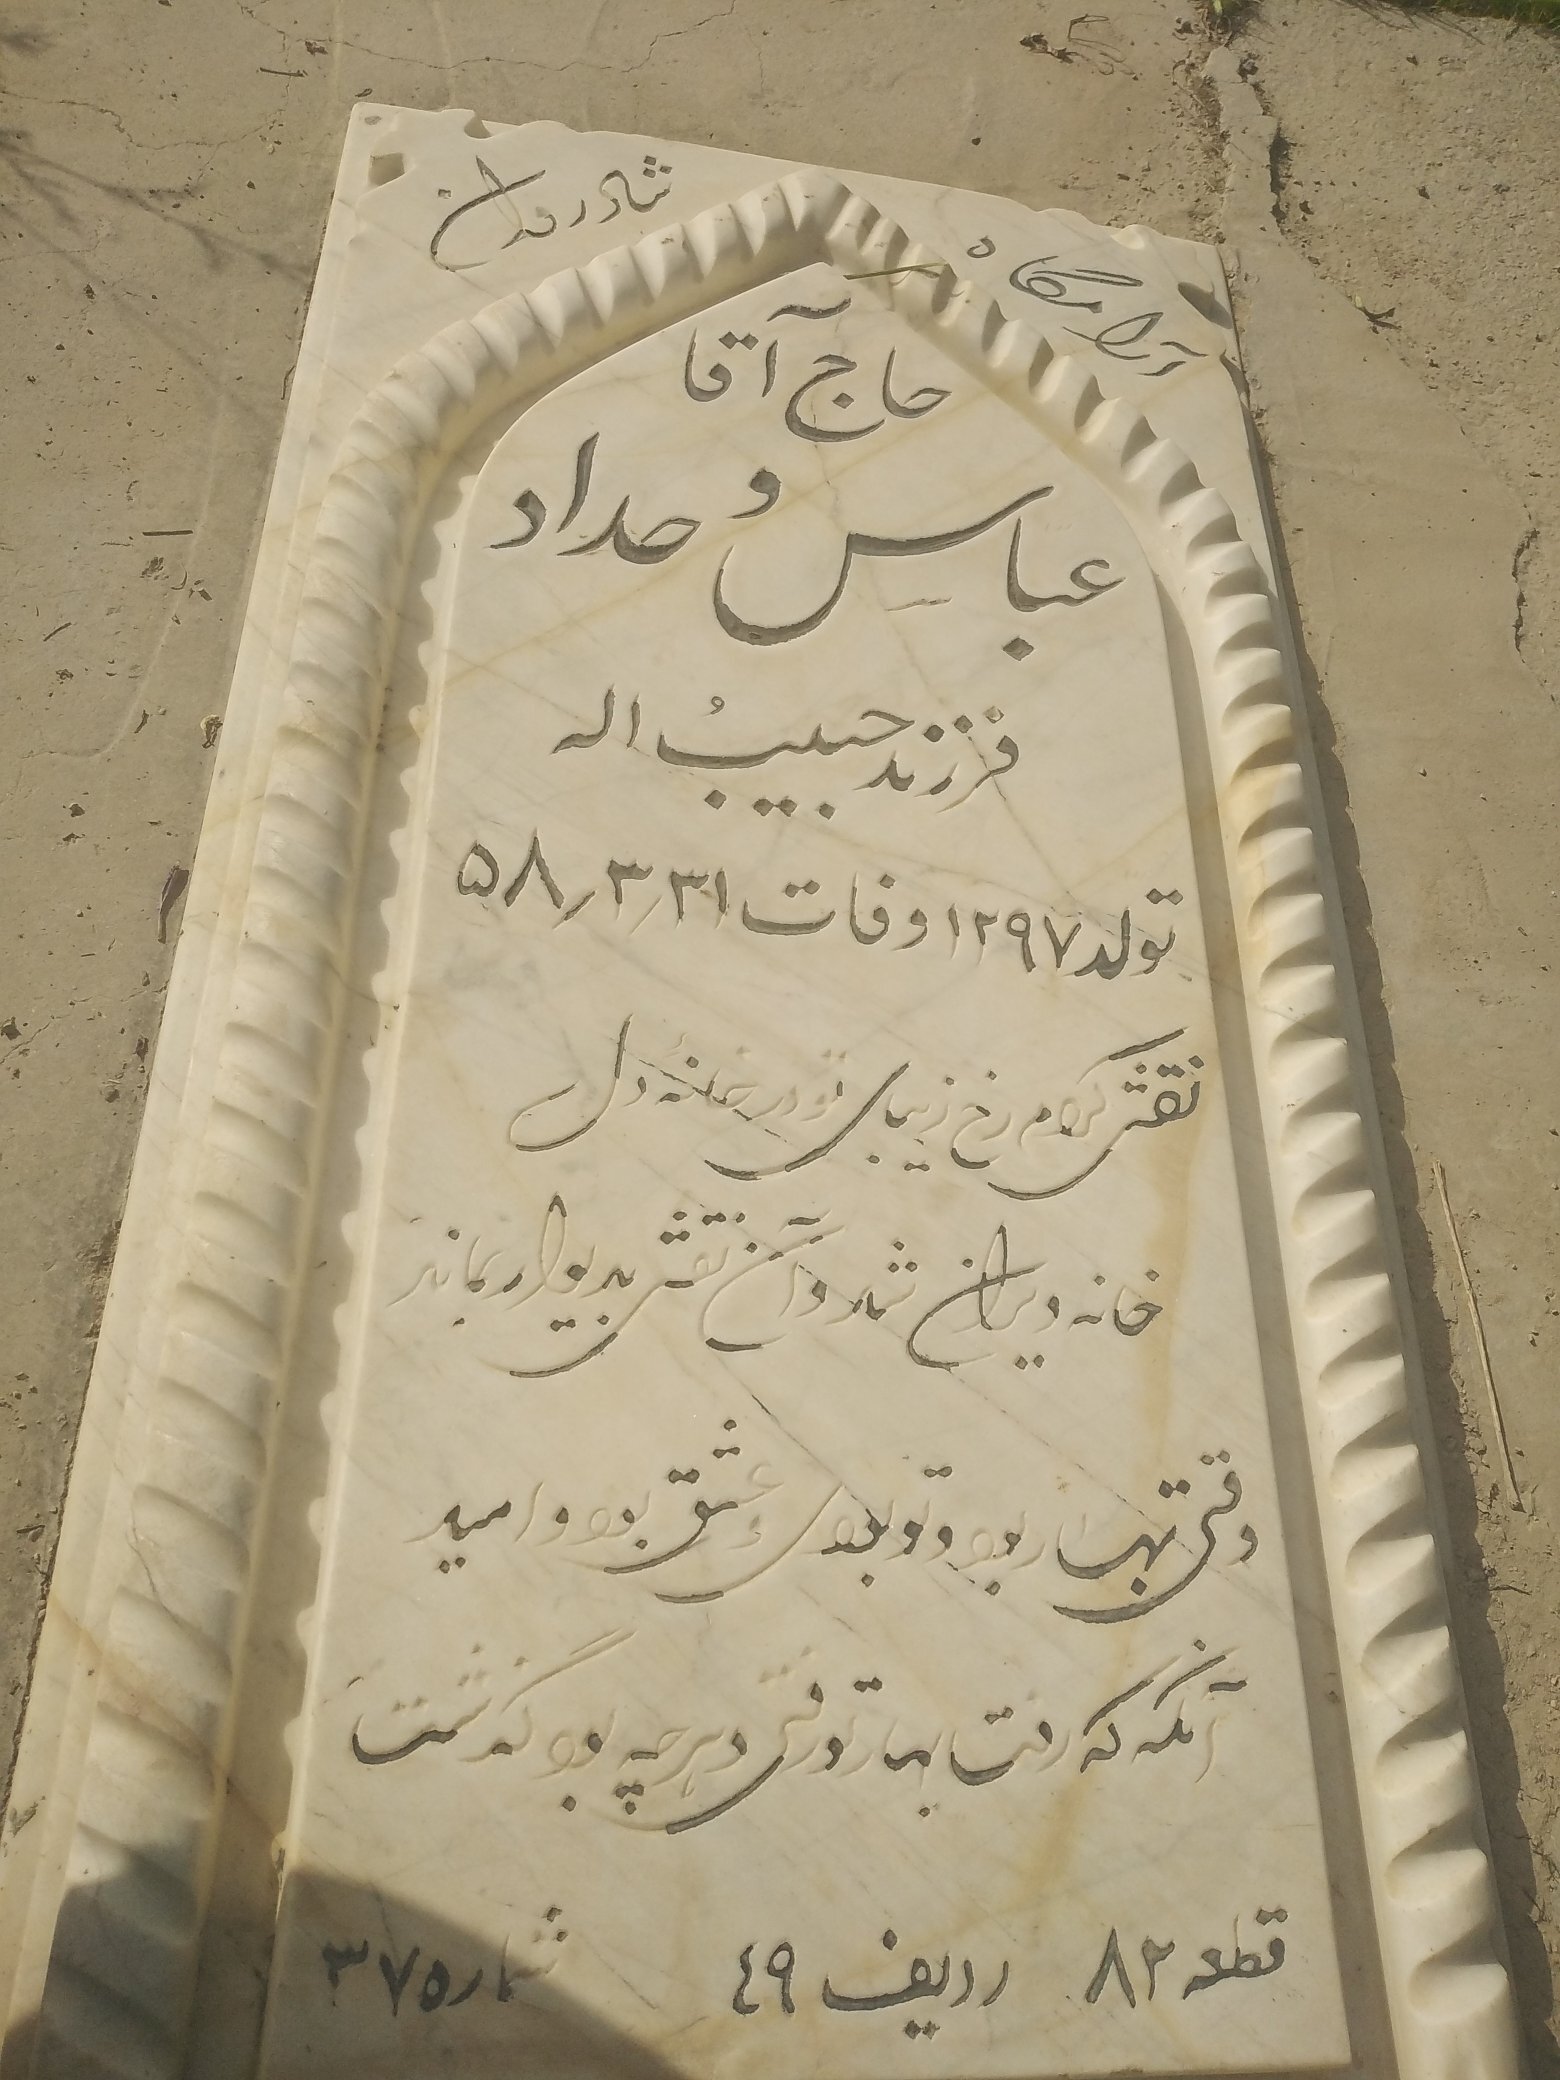 آرامگاه شادروان
حاج آقا
عباس وحداد
فرزند حبیبُ اله
تولد ۱۲۹۷ وفات ۳۱/۳/۵۸
نقش کردم رخ زیبای تو در خانهٔ دل
خانه ویران شد و آن نقش بدیوار بماند
وقتی بهار بود و تو بودی و عشق بود و امید
آنگه که رفت بهار تو رفتی و هر چه بود گذشت
قطعه ۸۲ ردیف ٤۹ شماره ۳۷۵